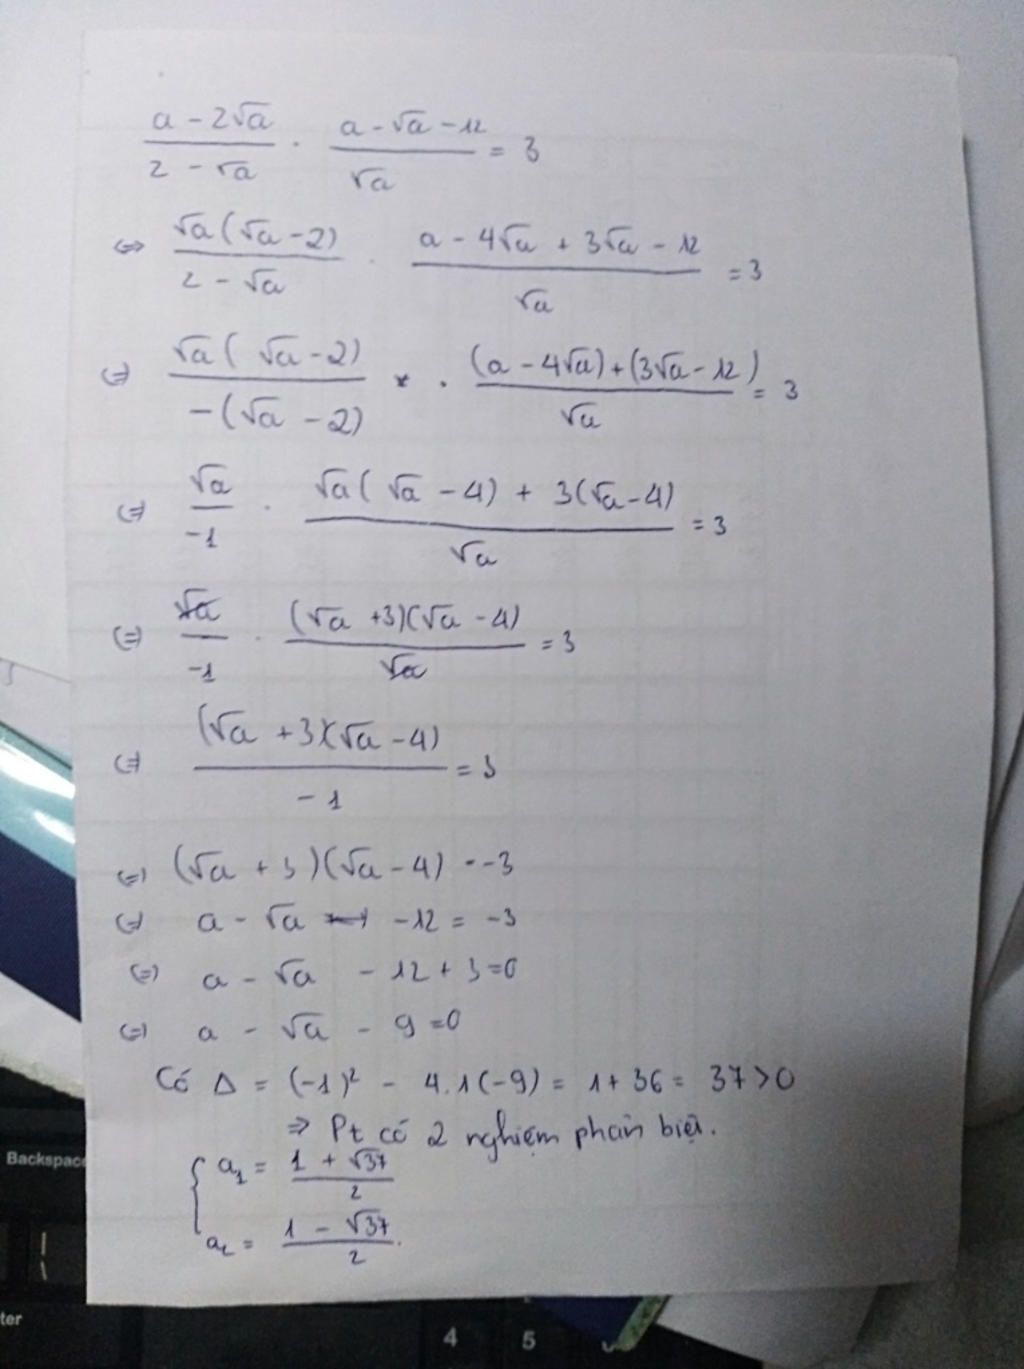 (a - 2√a)/(2 - √a) . (a - √a - 12)/√a = 3
<=> √a(√a - 2)/(2 - √a) . (a - 4√a + 3√a - 12)/√a = 3
(=) √a(√a - 2)/-(√a - 2) . ((a - 4√a) + (3√a - 12))/√a = 3
(=) √a/-1 . (√a(√a - 4) + 3(√a - 4))/√a = 3
(=) √a/-1 . (√a + 3)(√a - 4)/√a = 3
(=) (√a + 3)(√a - 4)/-1 = 3
(=) (√a + 3)(√a - 4) = -3
(=) a - √a - 12 = -3
(=) a - √a - 12 + 3 = 0
(=) a - √a - 9 = 0
Có Δ = (-1)² - 4.1(-9) = 1 + 36 = 37 > 0
=> Pt có 2 nghiệm phân biệt.
{ a₁ = (1 + √37)/2
a₂ = (1 - √37)/2.
Backspace
ter
4 5